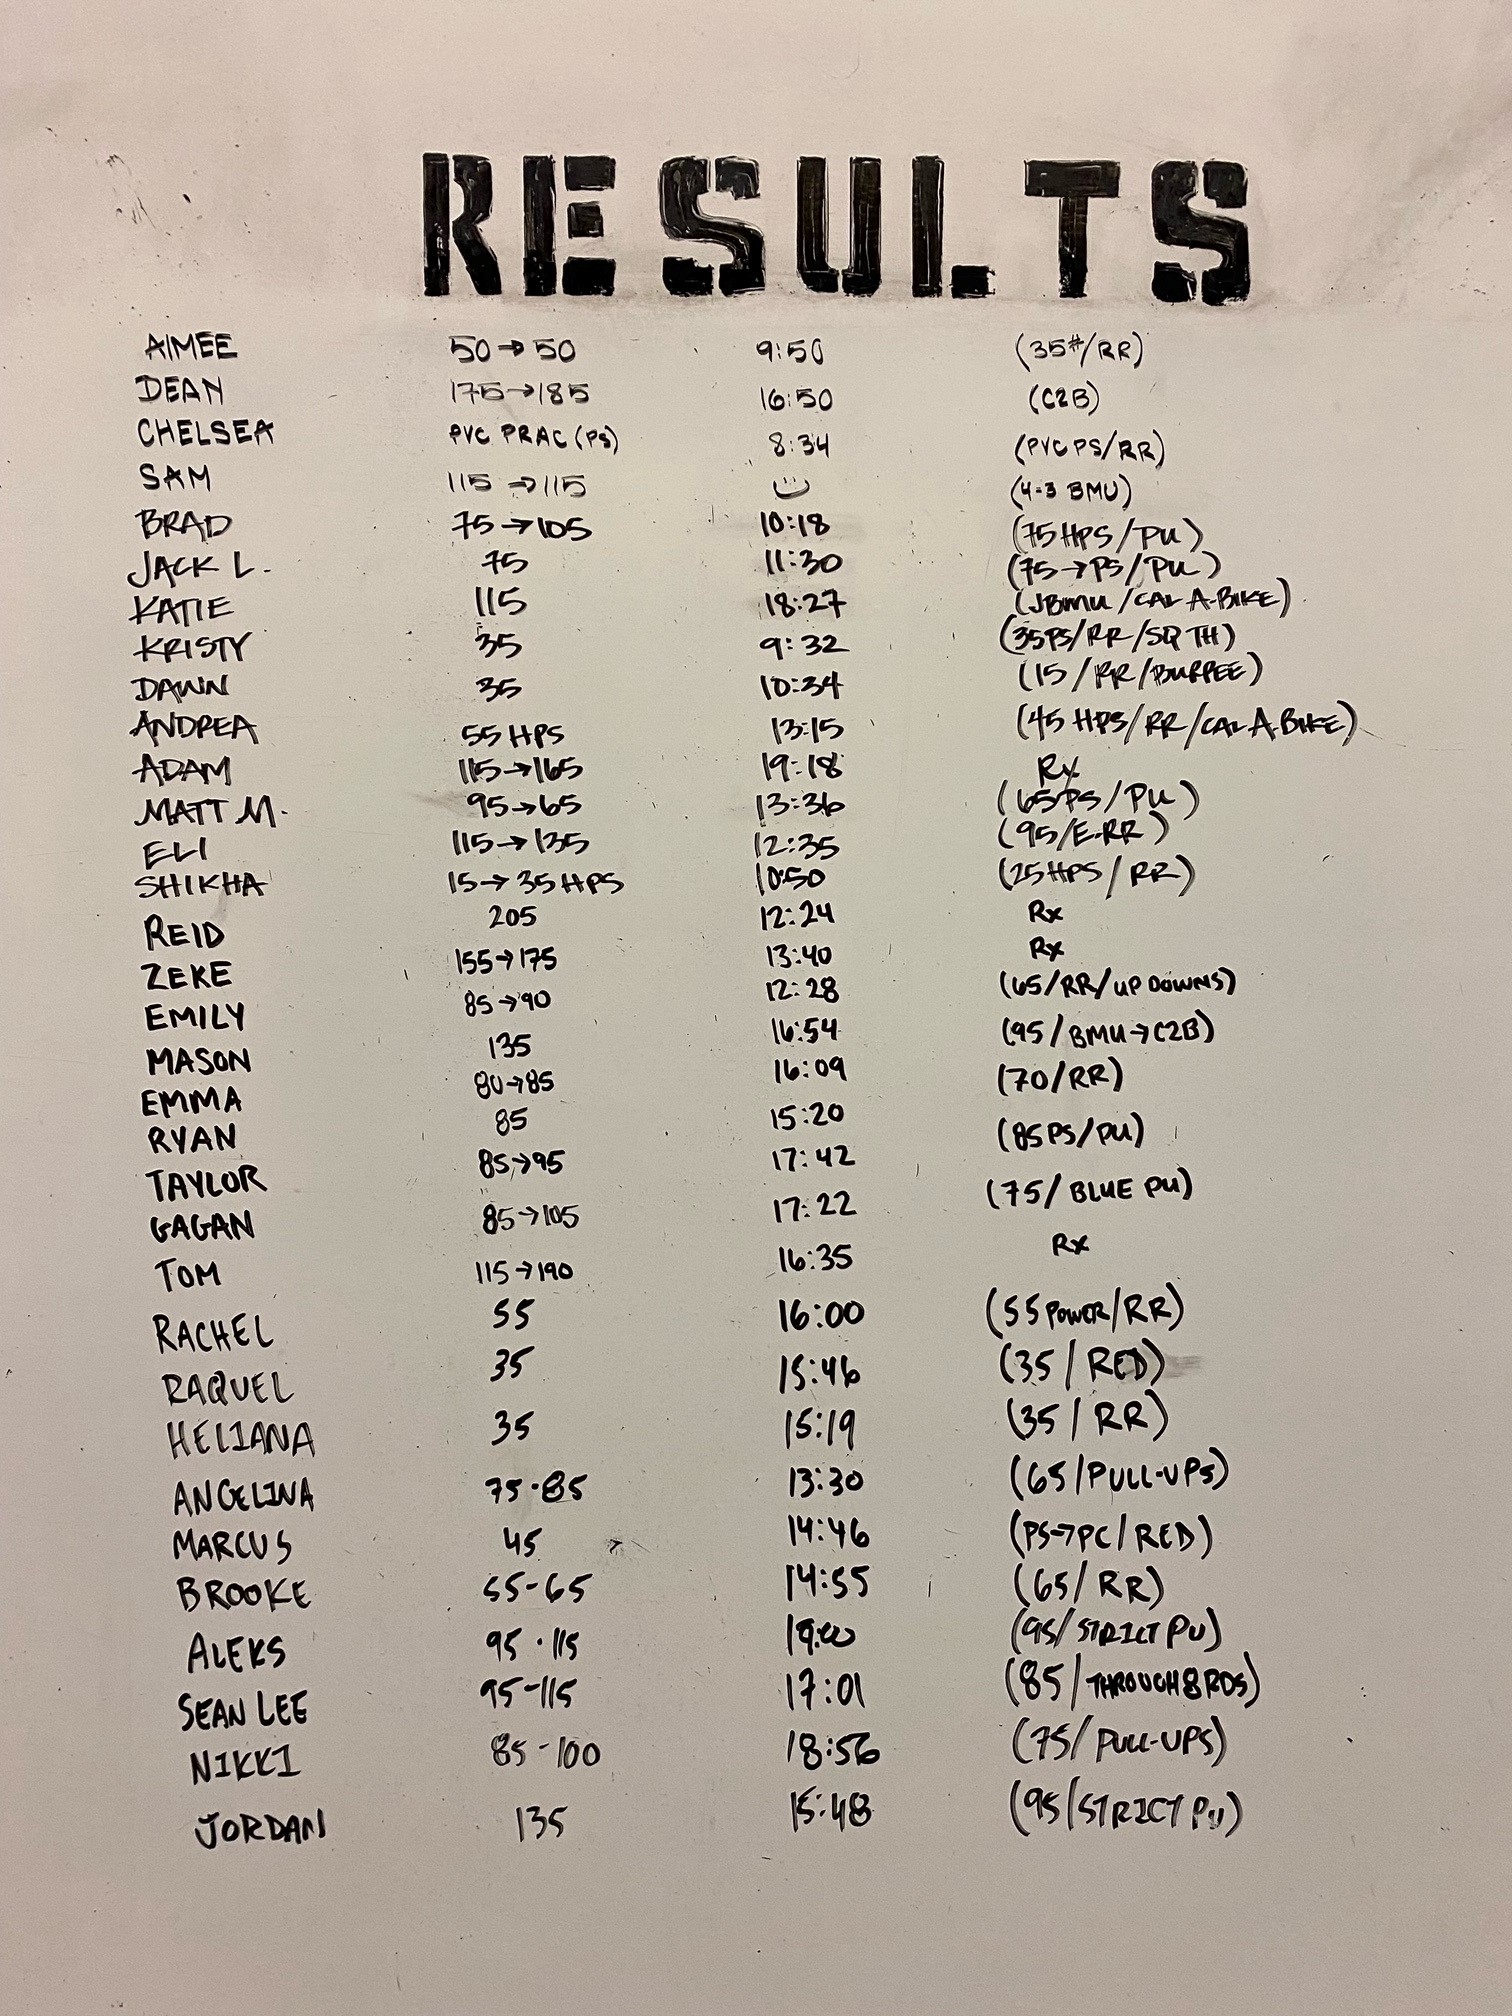 RESULTS
AIMEE 50→50 9:50 (35#/RR)
DEAN 175→185 16:50 (C2B)
CHELSEA PVC PRAC (PS) 8:34 (PVC PS/RR)
SAM 115→115 (4-3 BMU)
BRAD 75→105 10:18 (75 HPS/PU)
JACK L. 75 11:30 (75→PS/PU)
KATIE 115 18:27 (JBMU/CAL A.BIKE)
KRISTY 35 9:32 (35PS/RR/SQ TH)
DAWN 35 10:34 (15/RR/BURPEE)
ANDREA 55 HPS 13:15 (45 HPS/RR/CAL A.BIKE)
ADAM 115→165 19:18 Rx
MATT M. 95→65 13:36 (65PS/PU)
ELI 115→135 12:35 (95/E-RR)
SHIKHA 15→35 HPS 10:50 (25HPS/RR)
REID 205 12:24 Rx
ZEKE 155→175 13:40 Rx
EMILY 85→90 12:28 (65/RR/UP DOWNS)
MASON 135 16:54 (95/BMU→C2B)
EMMA 80→85 16:09 (70/RR)
RYAN 85 15:20 (85PS/PU)
TAYLOR 85→95 17:42
GAGAN 85→105 17:22 (75/BLUE PU)
TOM 115→190 16:35 Rx
RACHEL 55 16:00 (55 POWER/RR)
RAQUEL 35 15:46 (35/RED)
HELIANA 35 15:19 (35/RR)
ANGELINA 75-85 13:30 (65/PULL-UPS)
MARCUS 45 14:46 (PS→PC/RED)
BROOKE 55-65 14:55 (65/RR)
ALEKS 95-115 19:00 (95/STRICT PU)
SEAN LEE 95-115 17:01 (85/THROUGH 8 RDS)
NIKKI 85-100 18:56 (75/PULL-UPS)
JORDAN 135 15:48 (95/STRICT PU)